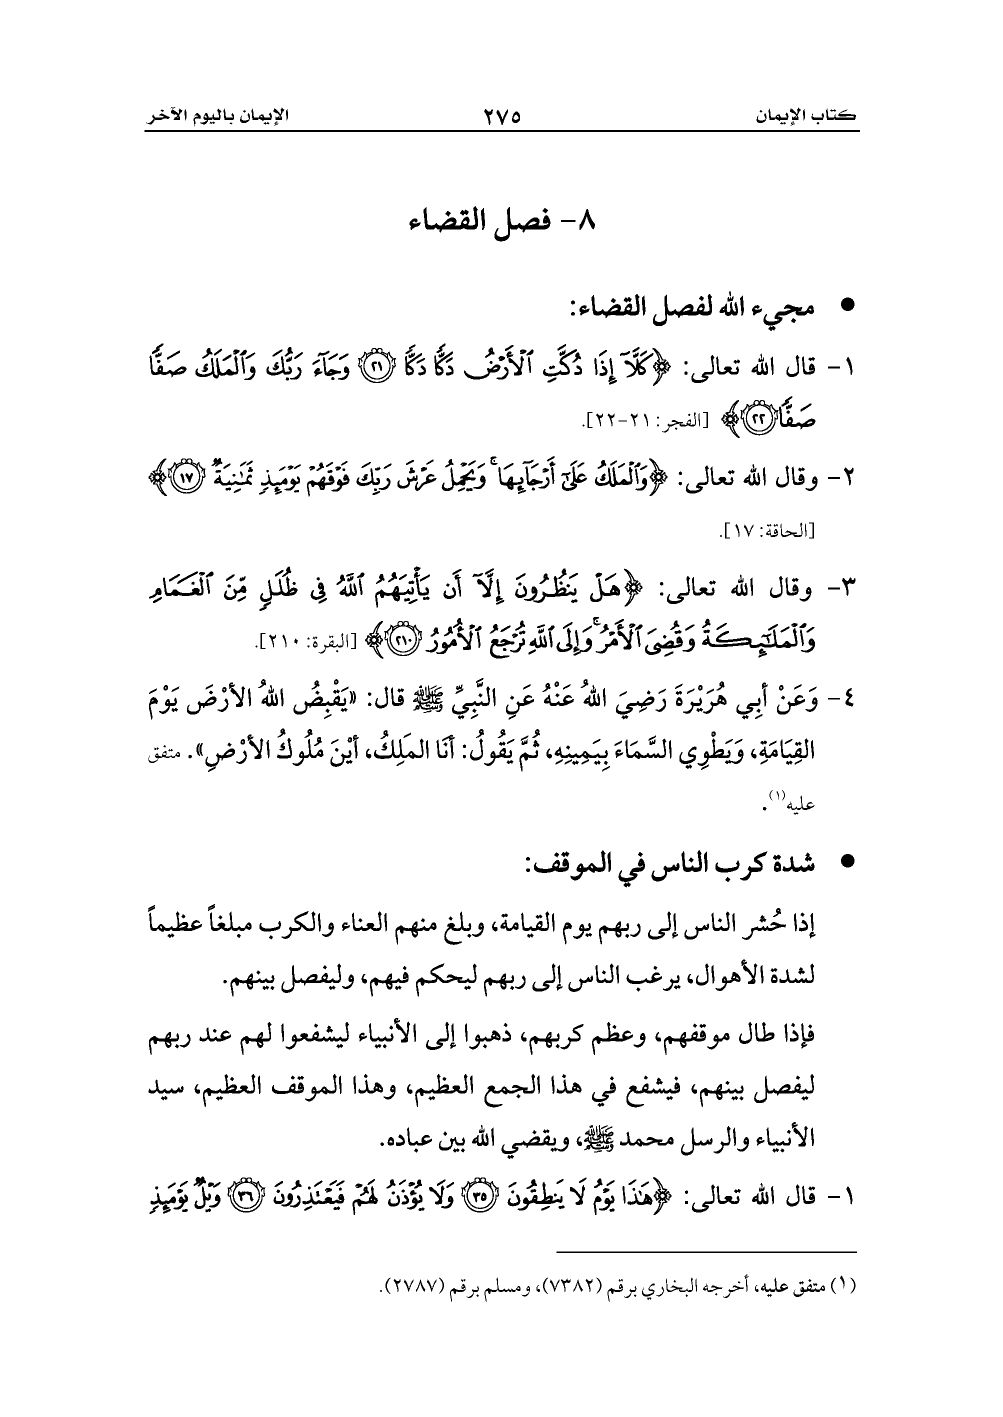 كتاب الإيمان ٢٧٥ الإيمان باليوم الآخر
٨- فصل القضاء
● مجيء الله لفصل القضاء:
١- قال الله تعالى: ﴿كَلَّآ إِذَا دُكَّتِ ٱلْأَرْضُ دَكًّا دَكًّا ۝٢١ وَجَآءَ رَبُّكَ وَٱلْمَلَكُ صَفًّا
صَفًّا ۝٢٢﴾ [الفجر: ٢١-٢٢].
٢- وقال الله تعالى: ﴿وَٱلْمَلَكُ عَلَىٰٓ أَرْجَآئِهَا ۚ وَيَحْمِلُ عَرْشَ رَبِّكَ فَوْقَهُمْ يَوْمَئِذٍ ثَمَٰنِيَةٌ ۝١٧﴾
[الحاقة: ١٧].
٣- وقال الله تعالى: ﴿هَلْ يَنظُرُونَ إِلَّآ أَن يَأْتِيَهُمُ ٱللَّهُ فِى ظُلَلٍ مِّنَ ٱلْغَمَامِ
وَٱلْمَلَٰٓئِكَةُ وَقُضِىَ ٱلْأَمْرُ ۚ وَإِلَى ٱللَّهِ تُرْجَعُ ٱلْأُمُورُ ۝٢١٠﴾ [البقرة: ٢١٠].
٤- وَعَنْ أبِي هُرَيْرَةَ رَضِيَ اللهُ عَنْهُ عَنِ النَّبِيِّ ﷺ قال: «يَقْبِضُ اللهُ الأرْضَ يَوْمَ
القِيَامَةِ، وَيَطْوِي السَّمَاءَ بِيَمِينِهِ، ثُمَّ يَقُولُ: أنَا المَلِكُ، أيْنَ مُلُوكُ الأرْضِ». متفق
عليه(١).
● شدة كرب الناس في الموقف:
إذا حُشر الناس إلى ربهم يوم القيامة، وبلغ منهم العناء والكرب مبلغاً عظيماً
لشدة الأهوال، يرغب الناس إلى ربهم ليحكم فيهم، وليفصل بينهم.
فإذا طال موقفهم، وعظم كربهم، ذهبوا إلى الأنبياء ليشفعوا لهم عند ربهم
ليفصل بينهم، فيشفع في هذا الجمع العظيم، وهذا الموقف العظيم، سيد
الأنبياء والرسل محمد ﷺ، ويقضي الله بين عباده.
١- قال الله تعالى: ﴿هَٰذَا يَوْمُ لَا يَنطِقُونَ ۝٣٥ وَلَا يُؤْذَنُ لَهُمْ فَيَعْتَذِرُونَ ۝٣٦ وَيْلٌ يَوْمَئِذٍ
(١) متفق عليه، أخرجه البخاري برقم (٧٣٨٢)، ومسلم برقم (٢٧٨٧).